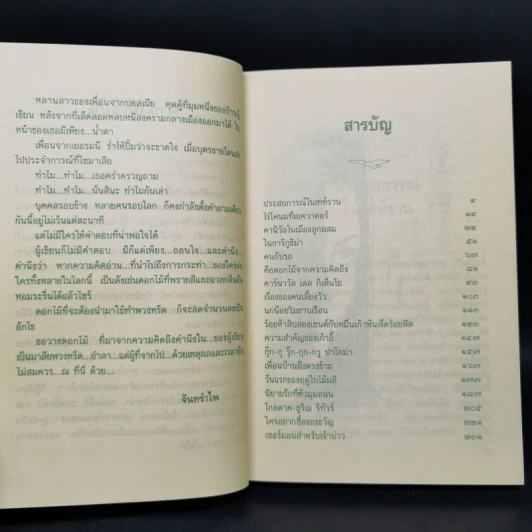 หลานสาวของเพื่อนจากบอสเนีย คุดคู้ที่มุมหนึ่งของบ้านผู้
เขียน หลังจากที่เล็ดลอดหลบหนีสงครามกลางเมืองออกมาได้ ใบ
หน้าของเธอมีเพียง...น้ำตา
เพื่อนจากเยอรมนี ร่ำไห้ปิ้มว่าจะขาดใจ เมื่อบุตรชายโดนส่ง
ไปประจำการที่โซมาเลีย
ทำไม...ทำไม...เธอคร่ำครวญถาม
ทำไม...ทำไม...นั่นสินะ ทำไมกันเล่า
บุคคลรอบข้าง หลายคนรอบโลก ก็คงกำลังตั้งคำถามเดียว
กันนี้อยู่ไม่เว้นแต่ละนาที
แต่ไม่มีใครให้คำตอบที่น่าพอใจได้
ผู้เขียนก็ไม่มีคำตอบ มีก็แต่เพียง...ถอนใจ...และคำนึง...
คำนึงว่า หากความคิดอ่าน...ที่นำไปถึงการกระทำ...ของใครต่อ
ใครทั้งหลายในโลกนี้ เป็นดังเช่นดอกไม้ที่พรายสีและอวดกลิ่นอัน
หอมระรื่นได้แล้วไซร้
ดอกไม้ที่จะต้องนำมาใช้ทำพวงหรีด ก็จะลดจำนวนลงเป็น
อักโข
ขอวางดอกไม้ ที่มาจากความคิดถึงคำนึงใน...ของผู้เขียน
เป็นมาลัยพวงหรีด...อำลา...แด่ผู้ที่จากไป...ด้วยเหตุผลและเวลาอัน
ไม่สมควร...ณ ที่นี้ ด้วย...
จันทรำไพ
สารบัญ
ประสบการณ์ในเตหะราน ๙
ไร้โคนมที่เอควาดอร์ ๑๙
คานิวัลในเมืองลูกผสม ๒๙
ในการีกูชีม่า ๕๑
คนกับรถ ๖๗
คือดอกไม้จากความคิดถึง ๘๑
คาร์นาวัล เดล กิเต็นโย ๙๓
เรื่องของคนเลี้ยงวัว ๑๐๓
นกน้อยริมชานเรือน ๑๑๓
ร้อยห้าสิบสองเซนต์กับหมื่นเก้าพันเจ็ดร้อยฟิต ๑๒๓
ความสำคัญของเก้าอี้ ๑๔๗
กุ๊ก-กู รุ๊ก-กุก-กรู ปาโลม่า ๑๕๗
เพื่อนบ้านฝั่งตรงข้าม ๑๖๗
วันแรกของฤดูใบไม้ผลิ ๑๗๗
นิยายรักที่หัวมุมถนน ๑๘๗
ไกลดาค-ซูริเม รีทัวร์ ๒๐๕
ใครอยากชื่อของขวัญ ๒๒๑
เซอร์มอนสำหรับเจ้าบ่าว ๒๓๑